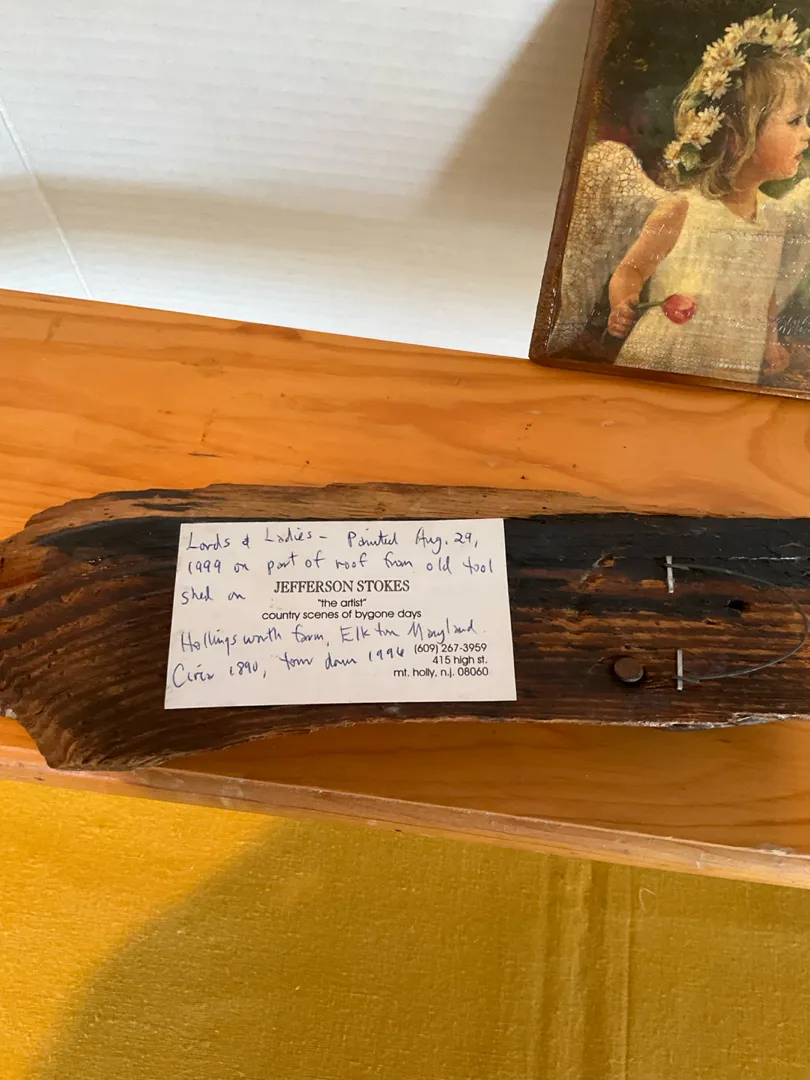 Lords & Ladies - Painted Aug. 29,
1999 on part of roof from old tool
shed on
JEFFERSON STOKES
"the artist"
country scenes of bygone days
Hollingsworth farm, Elkton Maryland.
Circa 1890, torn down 1996
(609) 267-3959
415 high st.
mt. holly, n.j. 08060